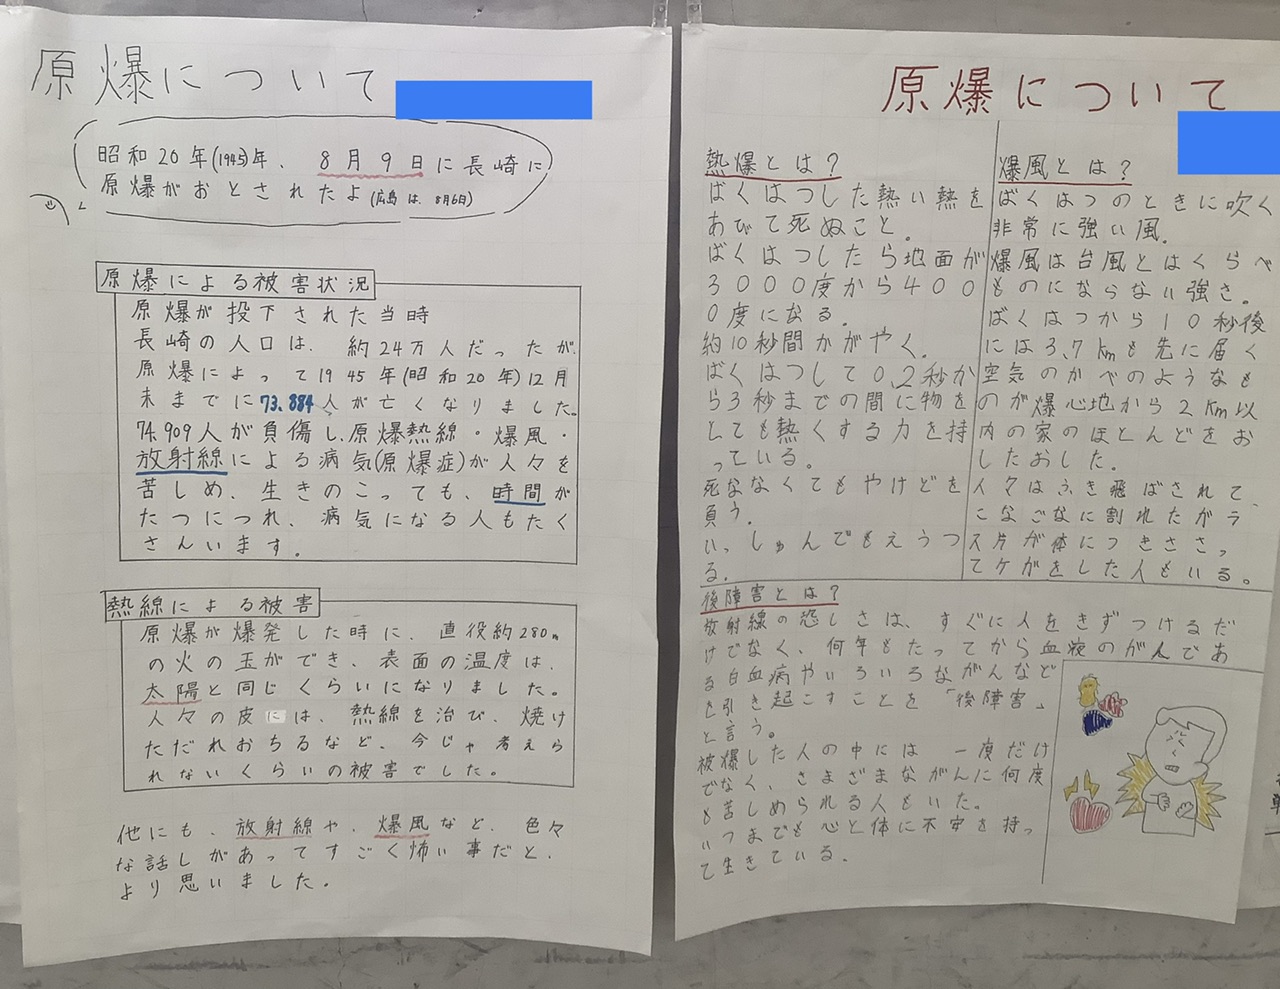 原爆について
昭和20年(1945)年、8月9日に長崎に
原爆がおとされたよ(広島は、8月6日)
原爆による被害状況
原爆が投下された当時
長崎の人口は、約24万人だったが、
原爆によって1945年(昭和20年)12月
末までに73.884人が亡くなりました。
74.909人が負傷し、原爆熱線・爆風・
放射線による病気(原爆症)が人々を
苦しめ、生きのこっても、時間が
たつにつれ、病気になる人もたく
さんいます。
熱線による被害
原爆が爆発した時に、直役約280m
の火の玉ができ、表面の温度は、
太陽と同じくらいになりました。
人々の皮には、熱線を治び、焼け
ただれおちるなど、今じゃ考えら
れないくらいの被害でした。
他にも、放射線や、爆風など、色々
な話しがあってすごく怖い事だと、
より思いました。
原爆について
熱爆とは?
ばくはつした熱い熱を
あびて死ぬこと。
ばくはつしたら地面が
3000度から400
0度になる。
約10秒間かがやく。
ばくはつして0.2秒か
ら3秒までの間に物を
とても熱くする力を持
っている。
死ななくてもやけどを
負う。
いっしゅんでもえうつ
る。
爆風とは?
ばくはつのときに吹く
非常に強い風。
爆風は台風とはくらべ
ものにならない強さ。
ばくはつから10秒後
には3.7kmも先に届く
空気のかべのようなも
のが爆心地から2km以
内の家のほとんどをお
したおした。
人々はふき飛ばされて、
こなごなに割れたガラ
ス片が体につきささっ
てケガをした人もいる。
後障害とは?
放射線の恐しさは、すぐに人をきずつけるだ
けでなく、何年もたってから血液のがんであ
る白血病やいろいろながんなど
を引き起こすことを「後障害」
と言う。
被爆した人の中には一度だけ
でなく、さまざまながんに何度
も苦しめられる人もいた。
いつまでも心と体に不安を持っ
て生きている。